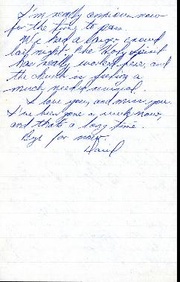 I'm really anxious now
for the time to pass.
We had a large crowd
last night. The Holy Spirit
has really worked here, and
the church is getting a
much needed revival.
I love you, and miss you.
I've been gone a week now,
and that's a long time.
Bye for now.
David